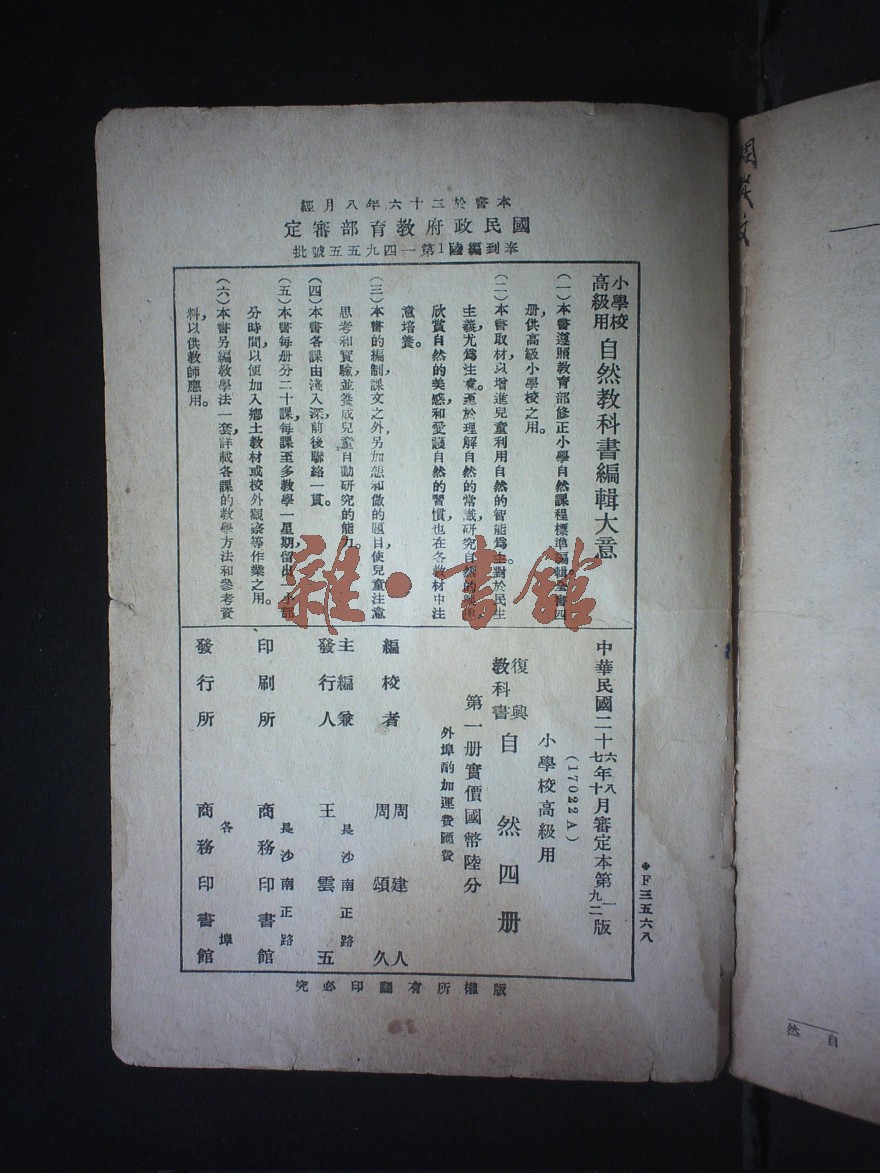 本書於二十六年八月經
國民政府教育部審定
奉到編陸1第一四九五五號批
小學校高級用 自然教科書編輯大意
(一)本書遵照教育部修正小學自然課程標準編輯全書四
册,供高級小學校之用。
(二)本書取材,以增進兒童利用自然的智能爲主,對於民生
主義,尤爲注意。至於理解自然的常識,研究自然的興趣,
欣賞自然的美感,和愛護自然的習慣,也在各教材中注
意培養。
(三)本書的編制,課文之外,另加想和做的題目,使兒童注意
思考和實驗,並養成兒童自動研究的能力。
(四)本書各課由淺入深,前後聯絡一貫。
(五)本書每册分二十課,每課至多教學一星期,留出一小部
分時間,以便加入鄉土教材或校外觀察等作業之用。
(六)本書另編教學法一套,詳載各課的教學方法和參考資
料,以供教師應用。
雜·書館
◆F三五六八
中華民國二十六年八月審定本第一版
七 十 九二
(17022A)
小學校高級用
復興教科書 自然四册
第一册實價國幣陸分
外埠酌加運費匯費
編校者 周建人
周頌久
主編兼發行人 長沙南正路
王雲五
印刷所 長沙南正路
商務印書館
發行所 各埠
商務印書館
版權所有翻印必究
自然